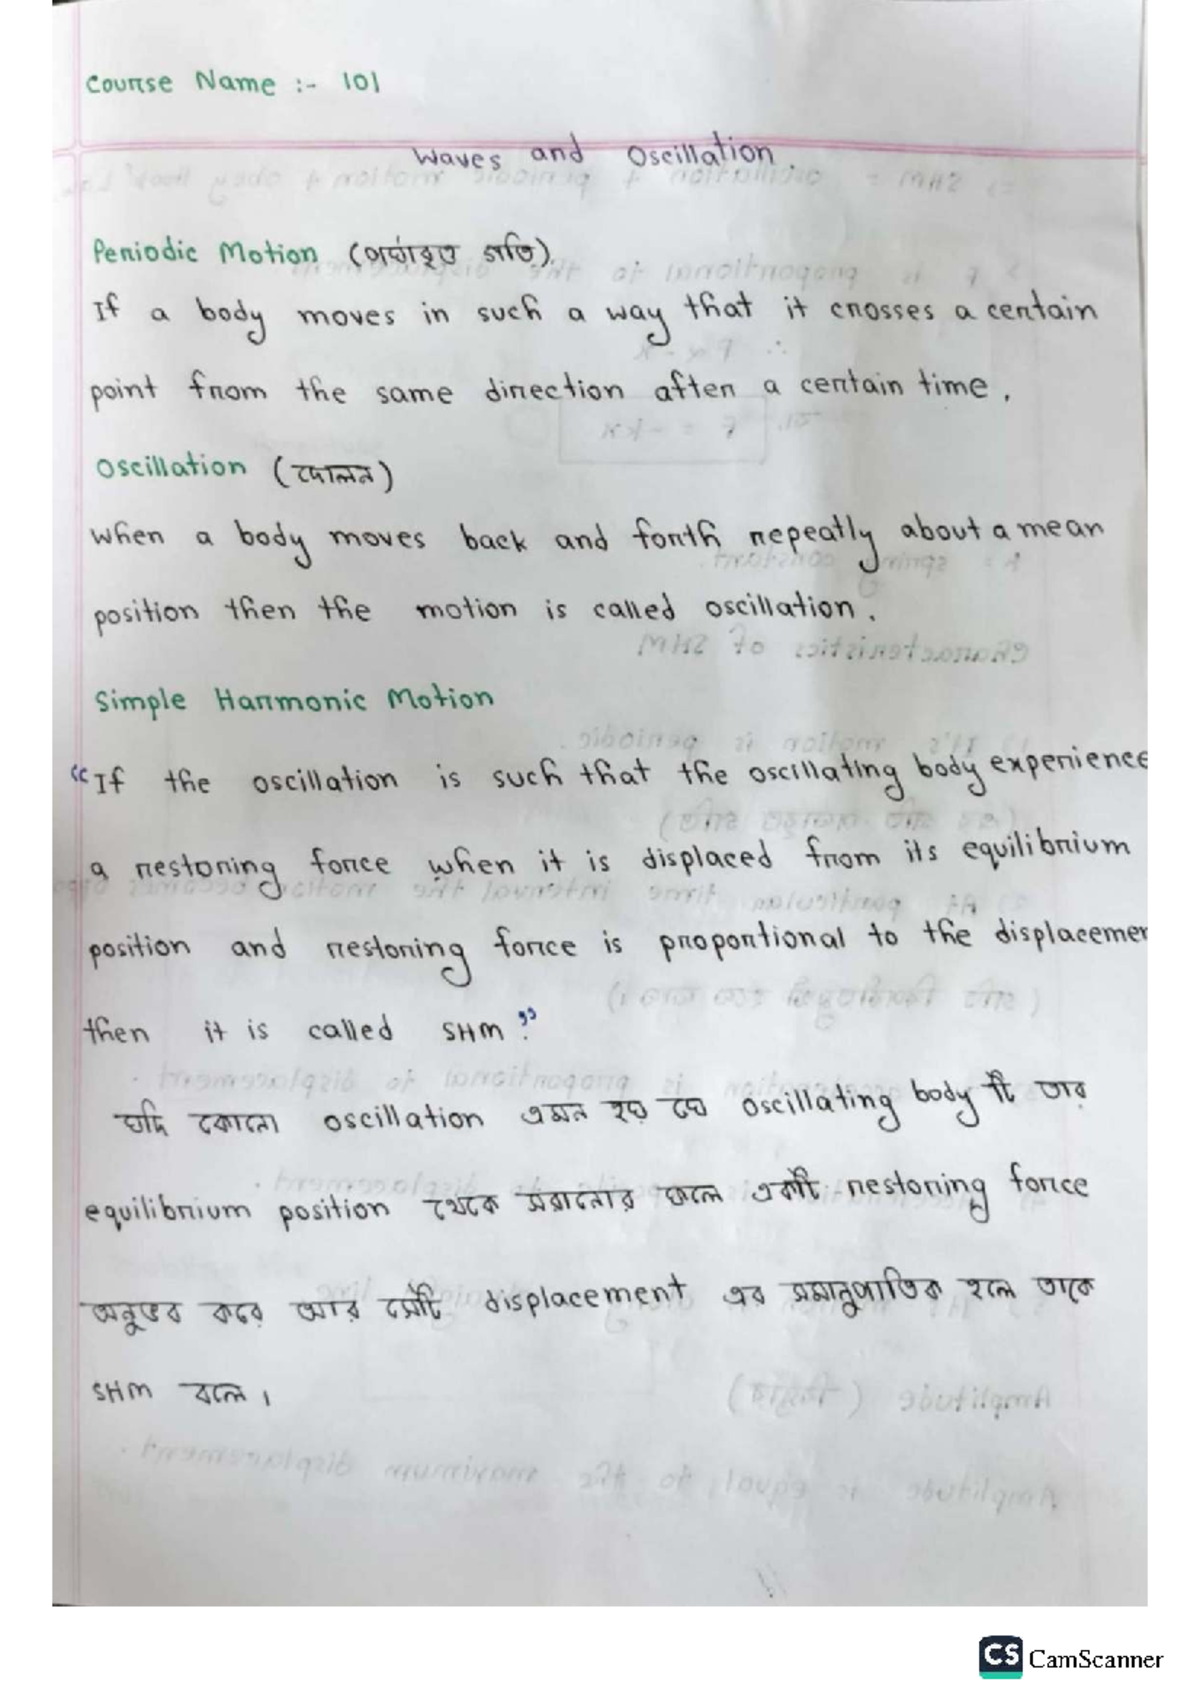 Course Name :- 101
Waves and Oscillation.
Periodic Motion (পর্যাবৃত্ত গতি).
If a body moves in such a way that it crosses a certain
point from the same direction after a certain time.
Oscillation (দোলন)
When a body moves back and forth repeatly about a mean
position then the motion is called oscillation.
Simple Harmonic Motion
“If the oscillation is such that the oscillating body experience
a restoring force when it is displaced from its equilibrium
position and restoring force is proportional to the displacemen
then it is called SHM.”
যদি কোনো oscillation এমন হয় যে oscillating body টি তার
equilibrium position থেকে সরানোর ফলে একটি restoring force
অনুভব করে আর সেটি displacement এর সমানুপাতিক হলে তাকে
SHM বলে।
CS CamScanner